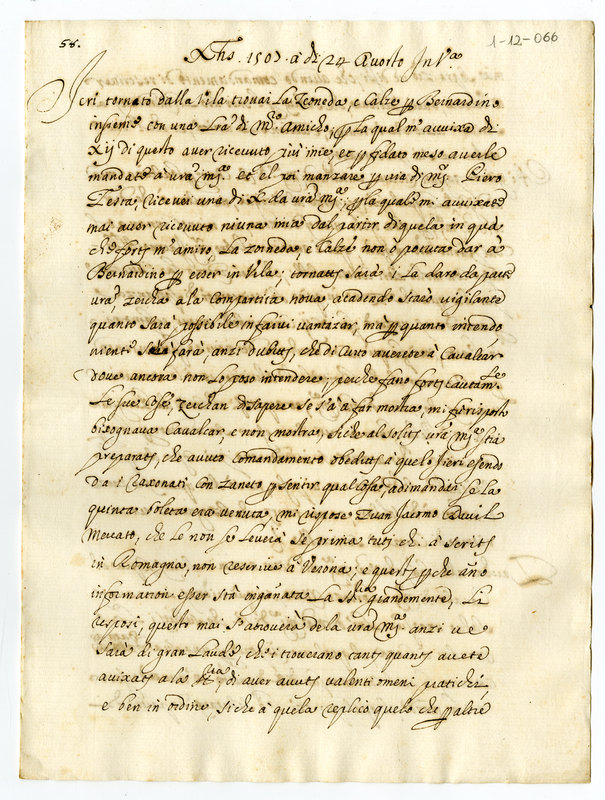 58.
1-12-066
Xhs. 1507. a di 24 Avosto In Va
Ieri tornato dalla Vila trovai La Zoneda, e Calze p Bernardino
insieme con una Lra di mo Amicho, p La qual m'avvixa di
Xij di questo aver ricevuto più mie, et p fidato meso averle
mandate a vra ma. Et el poi manzare p via di mo Piero
Testa, ricevei una di X. da vra ma; p la quale m' avvixate
mai aver ricevuto niuna mia dal partir di quela in qua
che forte m'amiro, La zoneda, e Calze non ò potuta dar à
Bernardino p esser in Vila; tornatto sarà i La daro da parte
vra, zercha a la Compartita nova, acadendo starò vigilante
quanto sarà possibile in farvi vantazar, mà p quanto intendo
niente farà, anzi dubitto, che di curto averete à Cavalcar
dove ancora non Lo poso intendere, perche fano forte Cautamle
Le sue Cose, zerchan di sapere se s'à à far mostra, mi fu risposto
bixognava Cavalcar, e non mostra, siche al solito vra ma stia
preparato, che avuto comandamento obeditte a quelo. Ieri esendo
da i raxonati con Zaneto p sentir qualcosa, adimandai se La
quinta boleta era venuta, mi rispose Zuan Jacomo
Merchato, che Le non se Leverà se prima tuti chi à scrito
in Romagna, non rescrive à Verona; e questo p che ano
information esser stà inganata La Sria grandemente, Li
resposi, questo mai s'atroverà de la vra ma. anzi ve
sarà di gran Laude, che i troverano tanto quanto avete
avixato a la Sria, di aver avuto valenti omeni pratichi,
e ben in ordine, siche à quela replico quelo che p altre